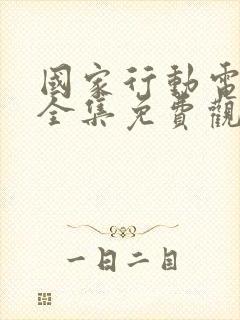 國家行動電
全集免費觀
一日二目